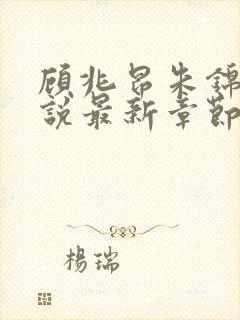 顧兆昂朱錦
說最新章節
楊瑞